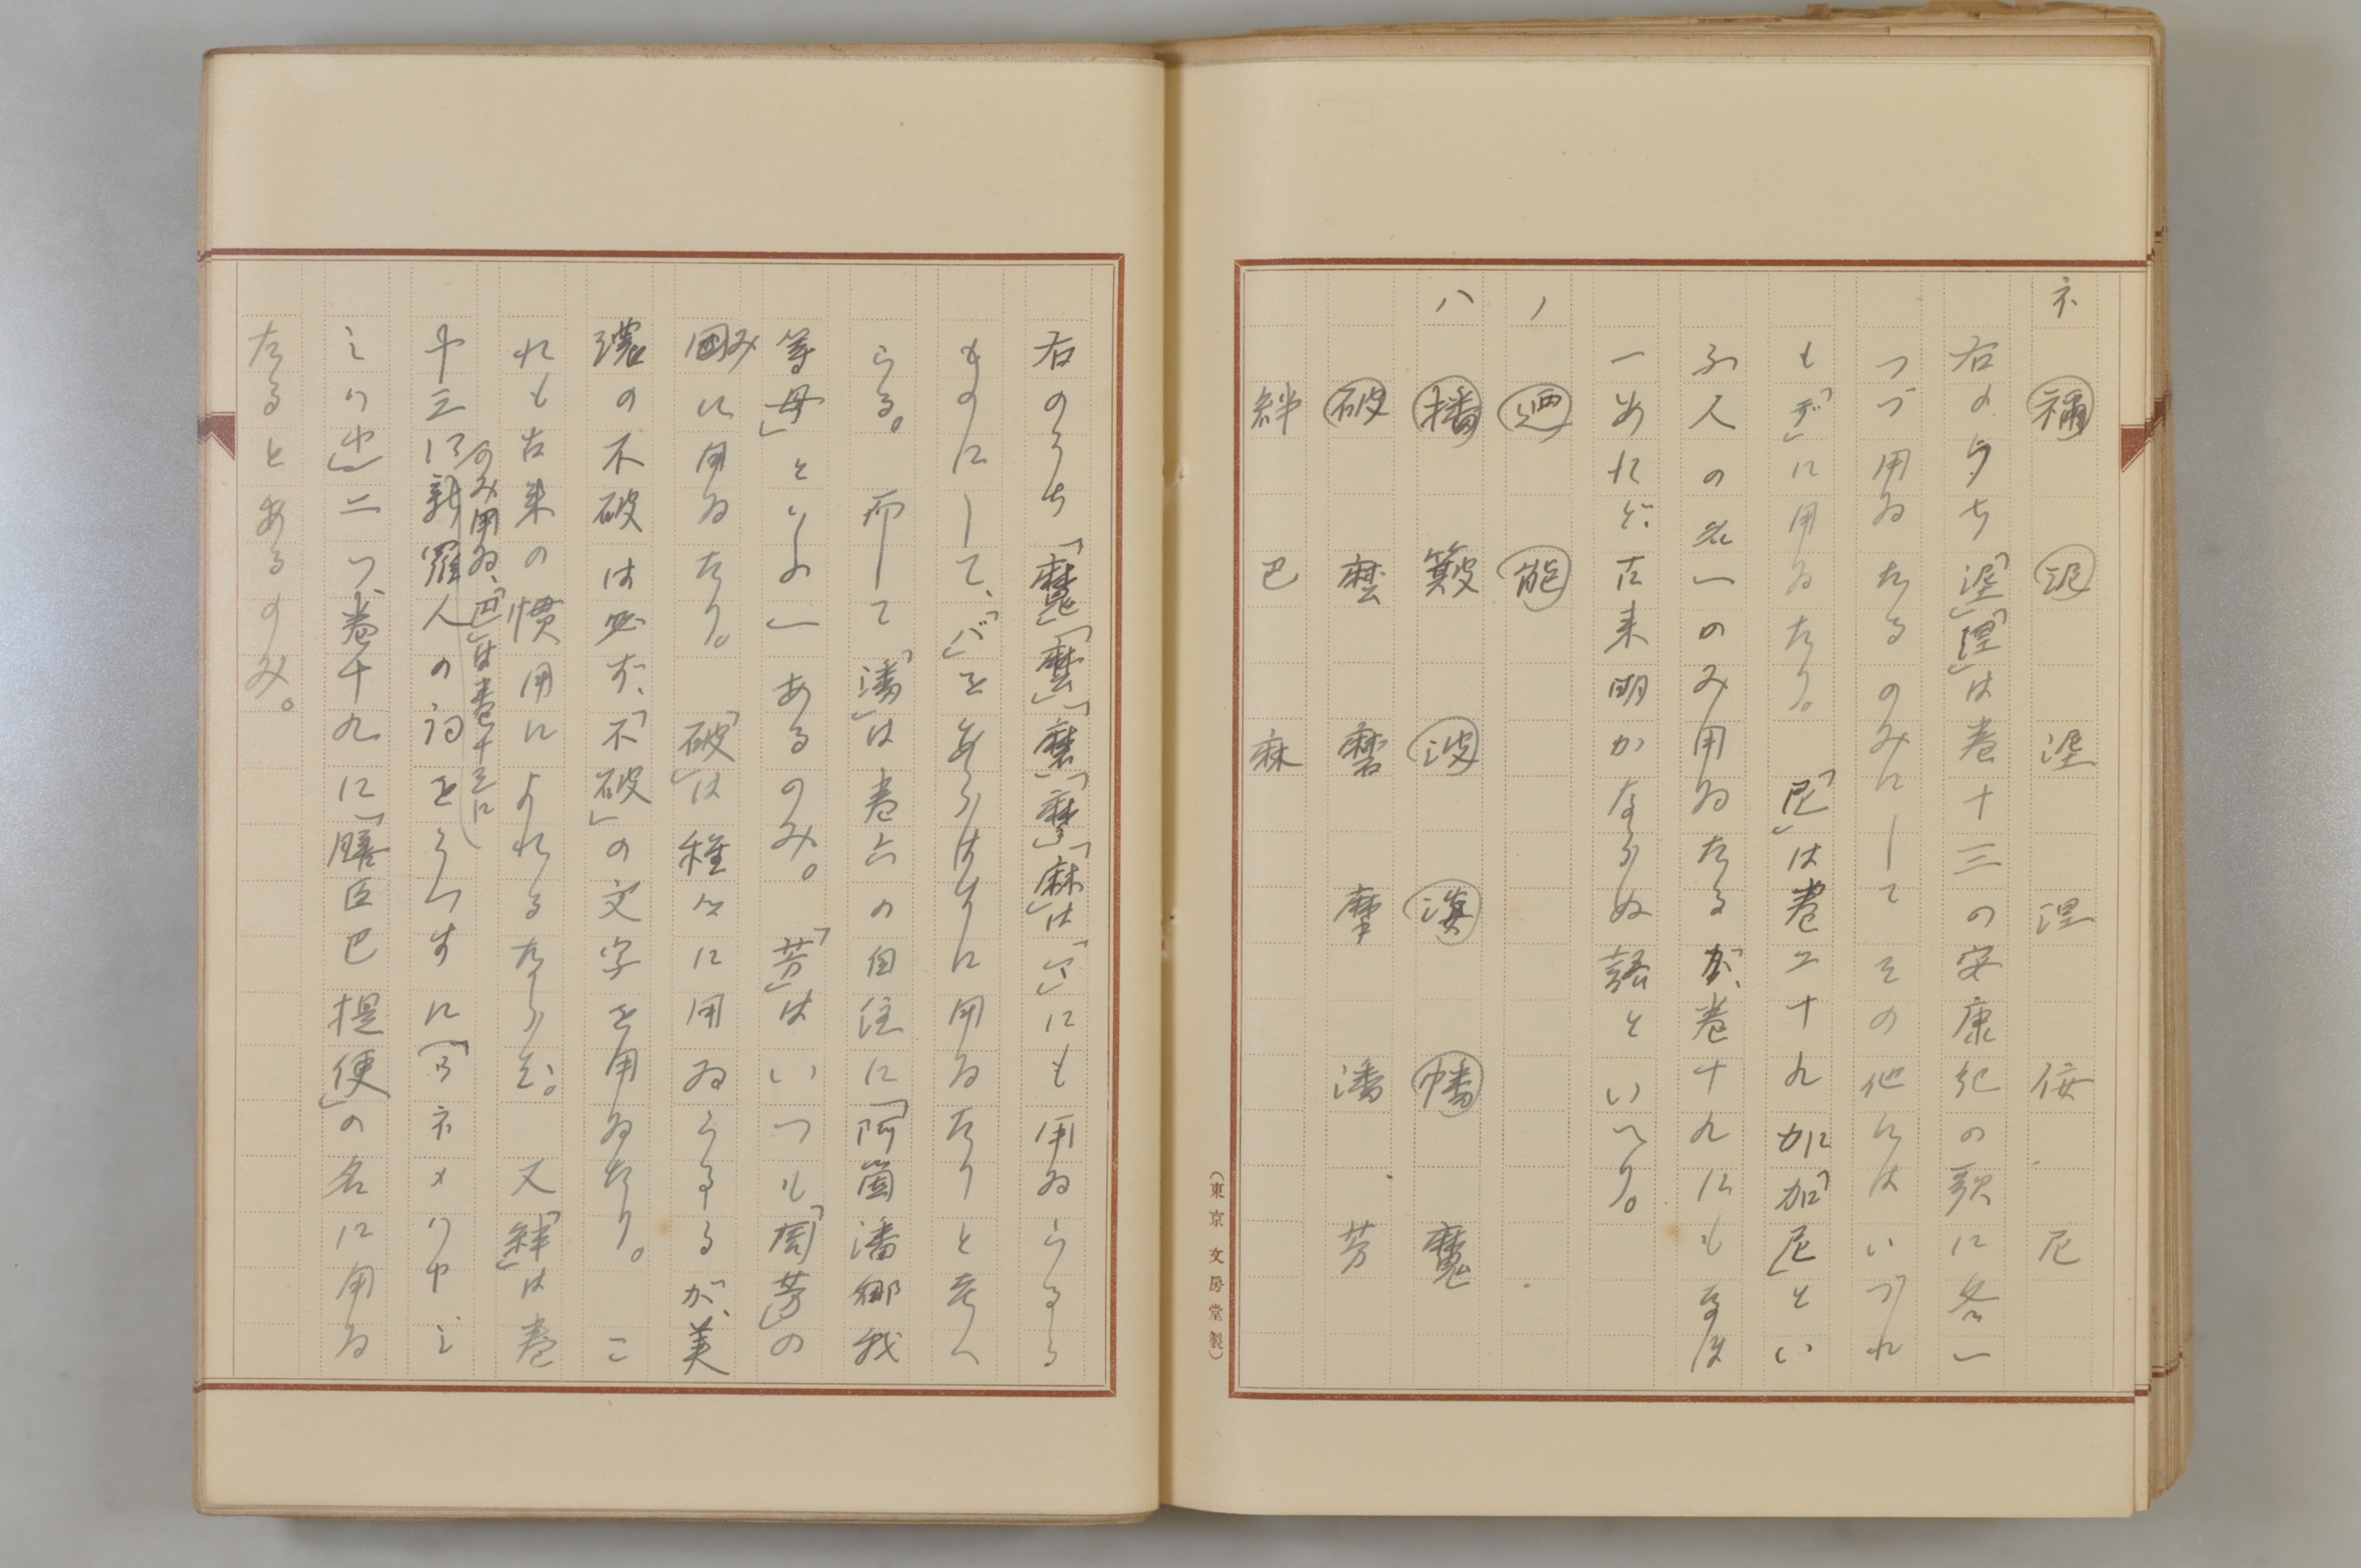 ネ 禰 泥 埿 涅 佞 尼
右のうち「埿」「涅」は巻十三の安康紀の歌に各一
つづ用ゐたるのみにしてその他にはいづれ
も「デ」に用ゐたり。「尼」は巻二十九に「加尼」とい
ふ人の名一のみ用ゐたるが、巻十九にもなほ
一あれど、古来明かならぬ語といへり。
ノ 廼 能
ハ 播 簸 波 渙 幡 魔
破 麼 磨 摩 潘 芳
絆 巴 麻
(東京 文房堂製)
右のうち「魔」「麼」「磨」「摩」「麻」は「マ」にも用ゐらるる
ものにして、「バ」をあらはすに用ゐたりと考へ
らる。而して「潘」は巻六の自注に「阿箇潘娜我
等母」といふの一あるのみ。「芳」はいつも「周芳」の
国のみに用ゐたり。「破」は種々に用ゐらるるが、美
濃の不破は必ず、「不破」の文字を用ゐたり。こ
れも古来の慣用によれるならむ。又「絆」は巻
のみ用ゐ、「巴」は巻十三に
十三に新羅人の詞をうつすに「ウネメハヤミ
ミハヤ」二つ、巻十九に「膳臣巴提便」の名に用ゐ
たるとあるのみ。